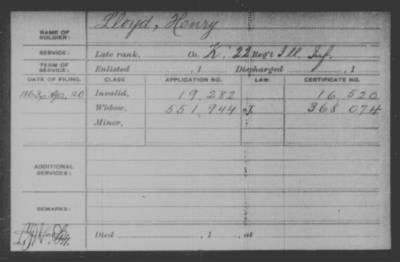 Lloyd, Henry
NAME OF SOLDIER:
SERVICE: Late rank, Co. K, 22 Reg't Ill. Inf.
TERM OF SERVICE: Enlisted , 1 Discharged , 1
DATE OF FILING. CLASS APPLICATION NO. LAW. CERTIFICATE NO.
1863, Apr. 20 Invalid, 19,282 16,520
Widow, 551,944 368,074
Minor,
ADDITIONAL SERVICES:
REMARKS:
Died , 1 , at